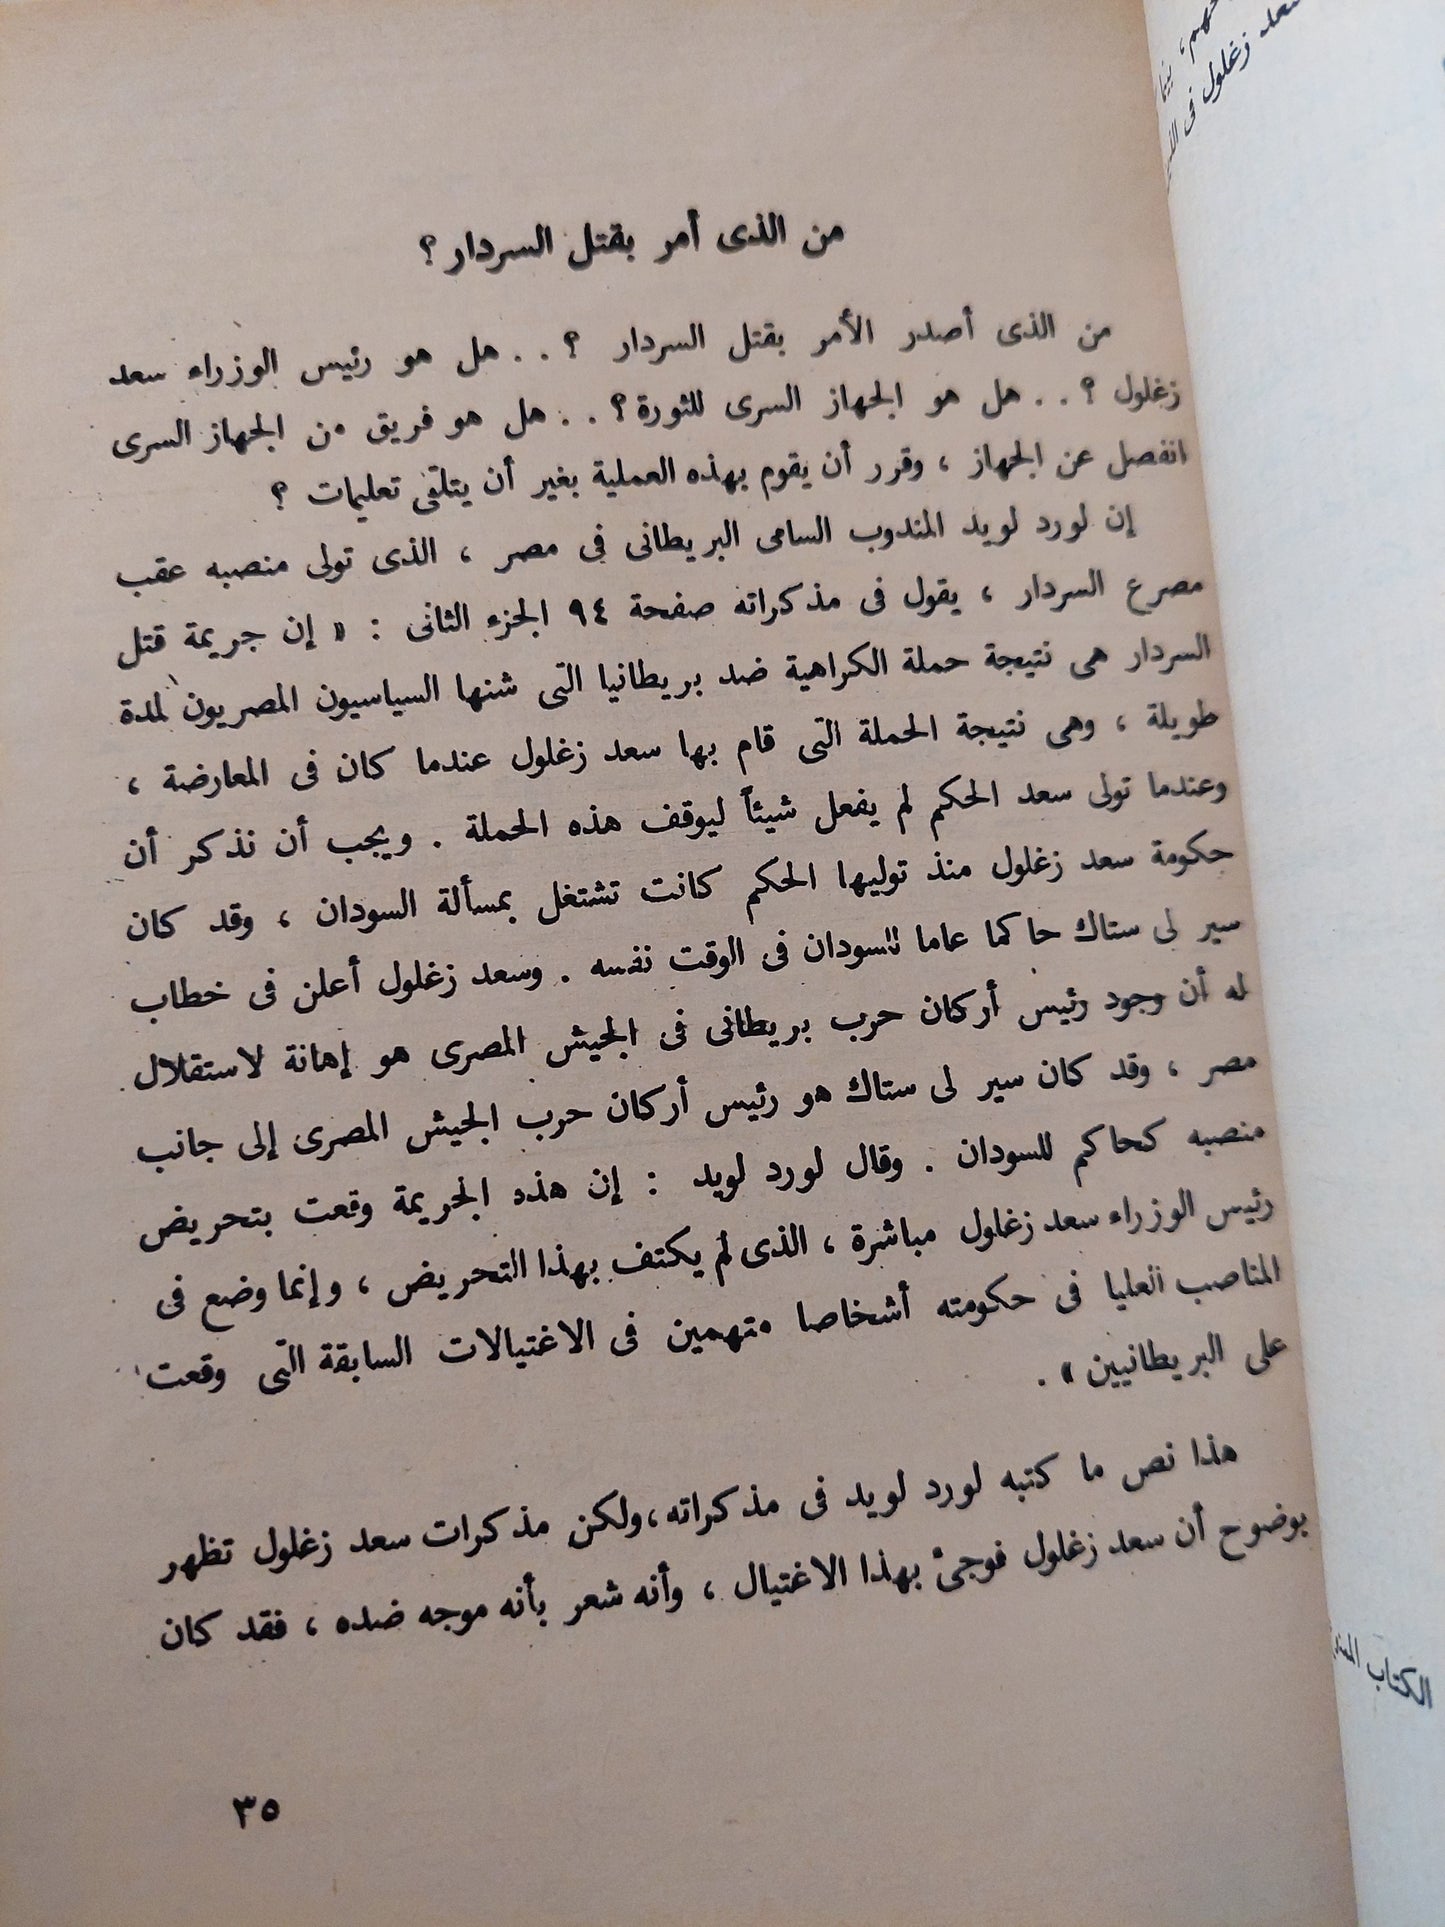 من الذى أمر بقتل السردار ؟
من الذى أصدر الأمر بقتل السردار ؟ . . هل هو رئيس الوزراء سعد
زغلول ؟ . . هل هو الجهاز السرى للثورة ؟ . . هل هو فريق من الجهاز السرى
انفصل عن الجهاز ، وقرر أن يقوم بهذه العملية بغير أن يتلقى تعليمات ؟
إن لورد لويد المندوب السامى البريطانى فى مصر ، الذى تولى منصبه عقب
مصرع السردار ، يقول فى مذكراته صفحة ٩٤ الجزء الثانى : « إن جريمة قتل
السردار هى نتيجة حملة الكراهية ضد بريطانيا التى شنها السياسيون المصريون لمدة
طويلة ، وهى نتيجة الحملة التى قام بها سعد زغلول عندما كان فى المعارضة ،
وعندما تولى سعد الحكم لم يفعل شيئاً ليوقف هذه الحملة . ويجب أن نذكر أن
حكومة سعد زغلول منذ توليها الحكم كانت تشتغل بمسألة السودان ، وقد كان
سير لى ستاك حاكما عاما للسودان فى الوقت نفسه . وسعد زغلول أعلن فى خطاب
له أن وجود رئيس أركان حرب بريطانى فى الجيش المصرى هو إهانة لاستقلال
مصر ، وقد كان سير لى ستاك هو رئيس أركان حرب الجيش المصرى إلى جانب
منصبه كحاكم للسودان . وقال لورد لويد : إن هذه الجريمة وقعت بتحريض
رئيس الوزراء سعد زغلول مباشرة ، الذى لم يكتف بهذا التحريض ، وإنما وضع فى
المناصب العليا فى حكومته أشخاصا متهمين فى الاغتيالات السابقة التى وقعت
على البريطانيين » .
هذا نص ما كتبه لورد لويد فى مذكراته، ولكن مذكرات سعد زغلول تظهر
بوضوح أن سعد زغلول فوجئ بهذا الاغتيال ، وأنه شعر بأنه موجه ضده ، فقد كان
٣٥
سعد زغلول فى
الكتاب